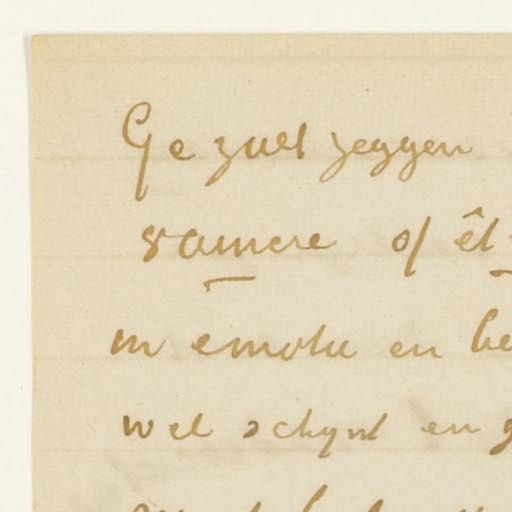 Ge zult zeggen
ramere of êt
in emotie en be
wel schijnt en g